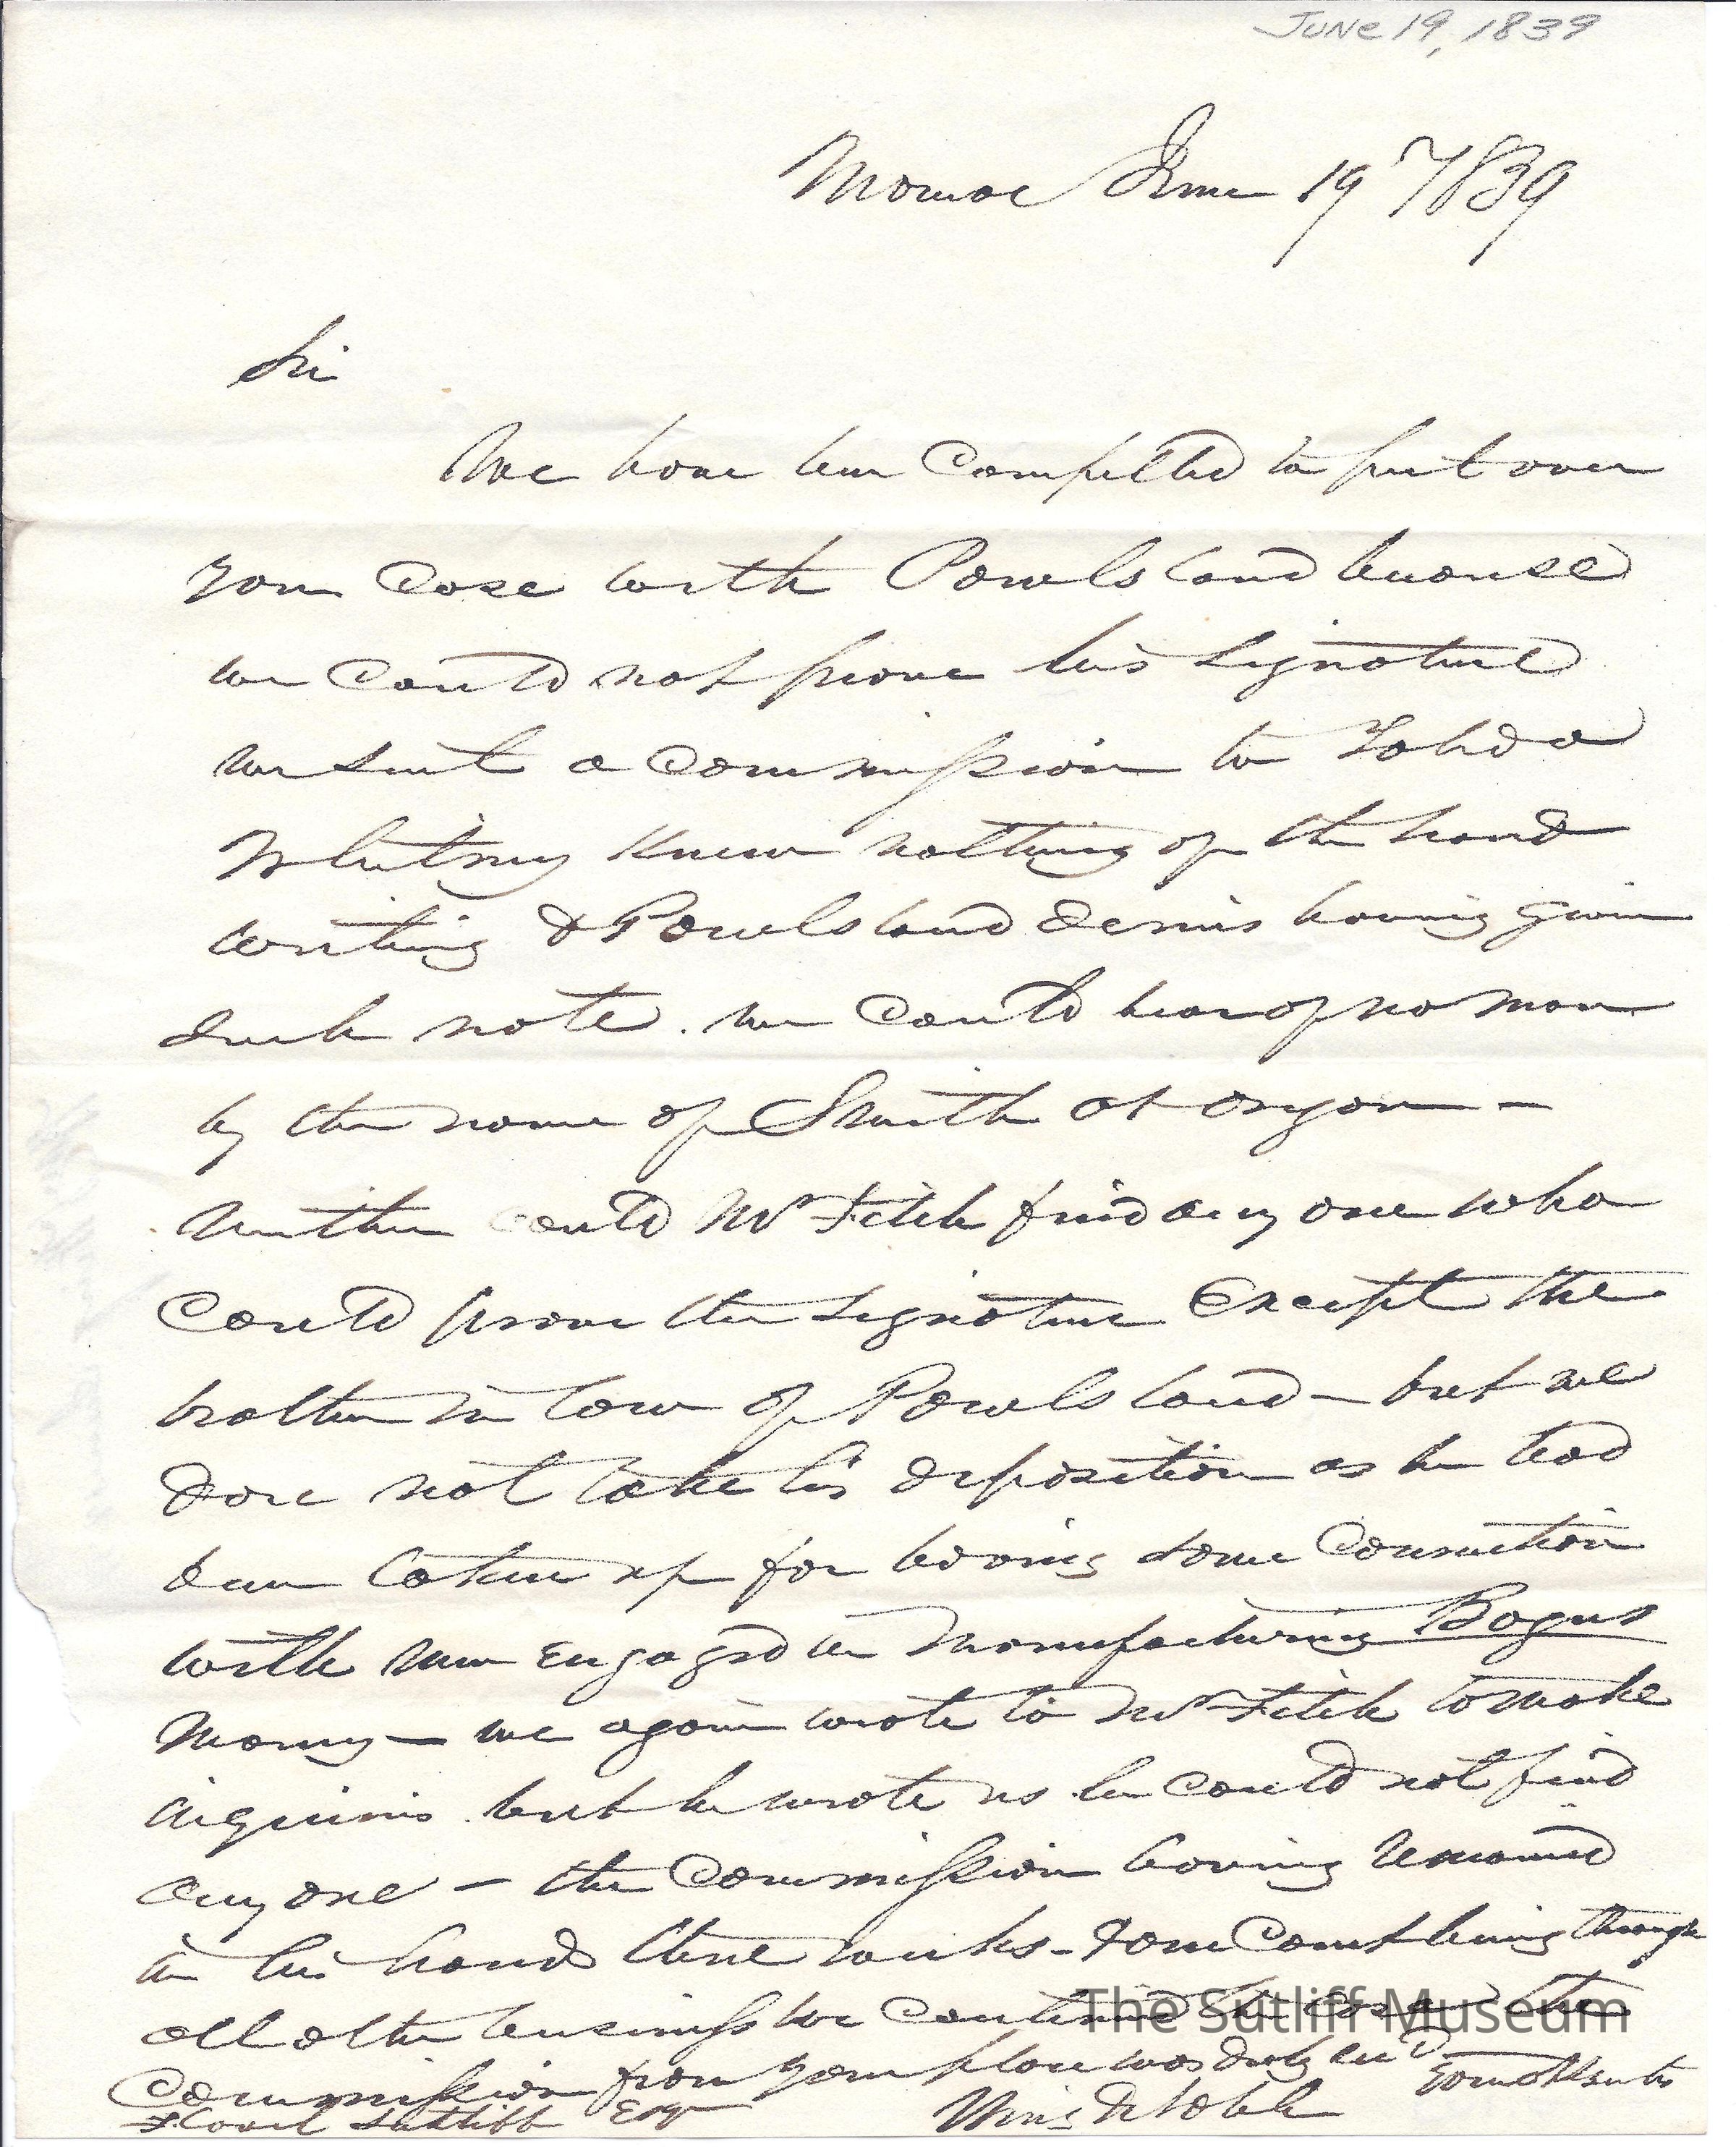 June 19, 1839
Monroe June 19th 1839
Sir
We have been Compelled to put over
your Case with Powelsland because
we could not prove his signature
we sent a commission to Toledo
Whitney knew nothing of the hand
writing & Powelsland denies having given
such note. we could hear of no man
by the name of Smith at Oregon –
neither could Mr Fitch find any one who
could prove the signature Except the
brother in law of Powelsland – but we
dare not take his deposition as he had
been taken up for having some Connection
with men engaged in manufacturing Bogus
Money – we again wrote to Mr Fitch to make
inquiries but he wrote us he could not find
any one – the Commission having remained
in his hands three weeks – & our Court being through
all other business we continued the case the
Commission from your place was duly
Yours
Flavel Sutliff Esq
The Sutliff Museum